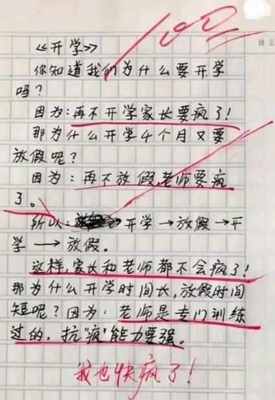 100
《开学》
你知道我们为什么要开学
吗?
因为:再不开学家长要疯了!
那为什么开学4个月又要
放假呢?
因为:再不放假,老师要疯
了。
所以:开学→放假→开
学→放假。
这样,家长和老师都不会疯了!
那为什么开学时间长,放假时间
短呢?因为:老师是专门训练
过的,抗“疯”能力要强。
我也快疯了!